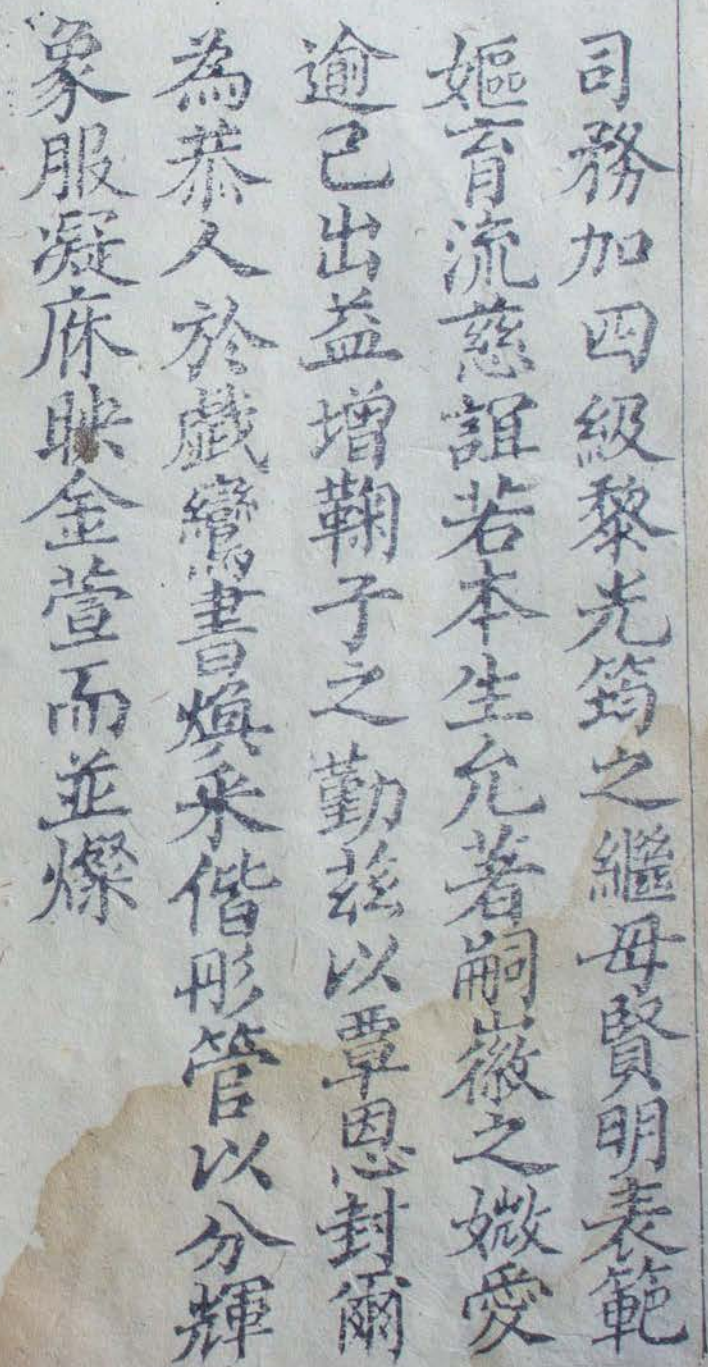 司務加四級黎光筠之繼母賢明表範
嫗育流慈誼若本生允著嗣徽之媺愛
逾己出益增鞠子之勤茲以覃恩封爾
為恭人於戲鸞書煥采偕彤管以分輝
象服凝庥映金萱而並燦